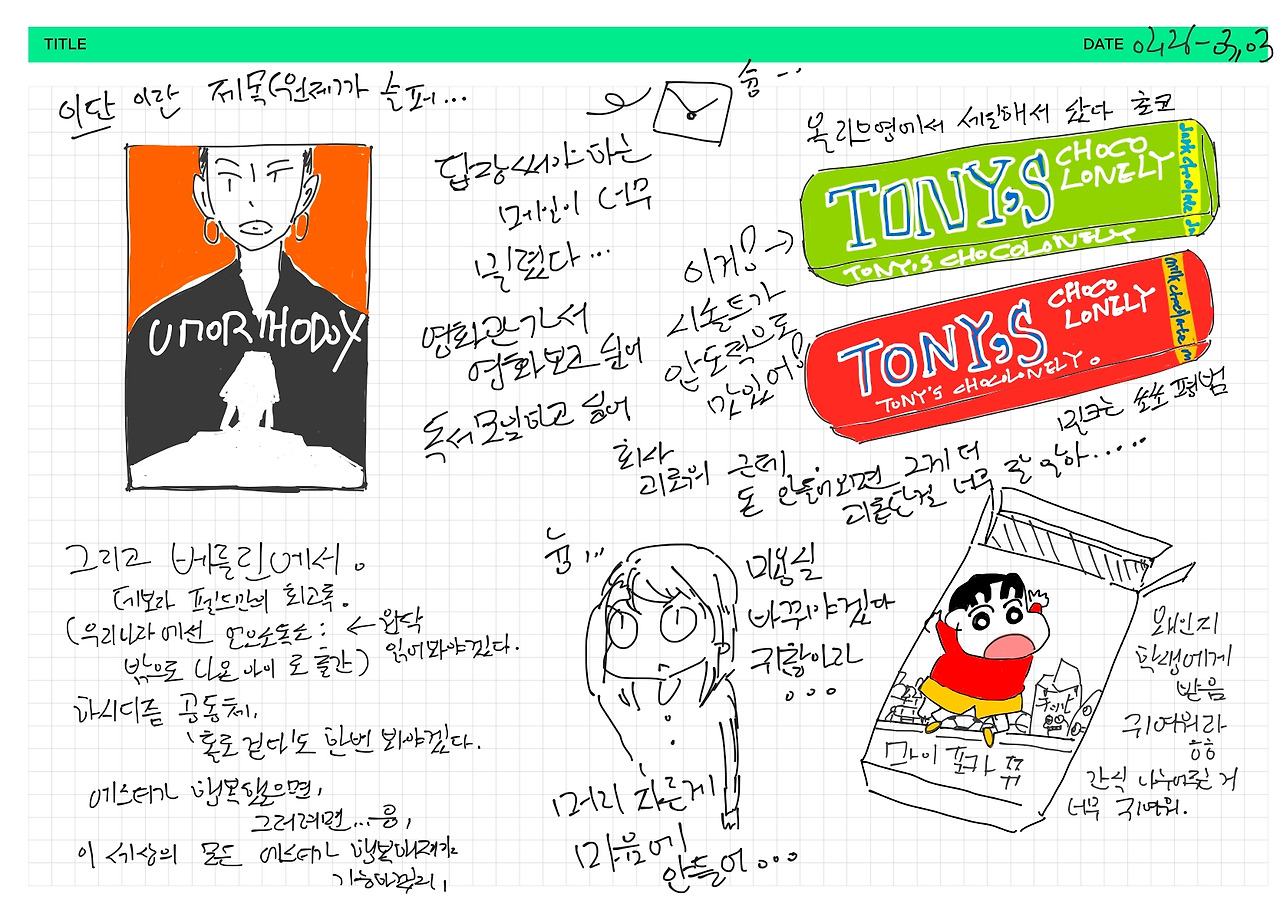 TITLE
DATE 0426-03,03
이단 이란 제목(원제)가 슬퍼...
슝...
답장써야 하는
메일이 너무
밀렸다...
영화관 가서
영화보고 싶어
독서모임하고 싶어
올리브영에서 세일해서 샀다 초코
TONY'S CHOCO LONELY
dark chocolate
TONY'S CHOCOLONELY
이거! →
시솔트가
압도적으로
맛있어!
TONY'S CHOCO LONELY
milk chocolate m
TONY'S CHOCOLONELY.
밀크는 쏘쏘 평범
UNORTHODOX
회사
괴로워 근데
돈 안들어오면 그게 더
괴롭단걸 너무 잘 알아.....
그리고 베를린에서.
데보라 펠드만의 회고록.
(우리나라에선 언오소독스:
밖으로 나온 아이 로 출간)
← 완닥
읽어봐야겠다.
하시디즘 공동체,
'홀로 걷다'도 한번 봐야겠다.
에스티가 행복했으면,
그러려면...음,
이 세상의 모든 에스티가 행복해져야
흠...
미용실
바꿔야겠다
귀찮아라
...
머리 자른게
마음에
안들어...
마이 포카 쮸
왜인지
학생에게
받음
귀여워라
흥흥
간식 나눠주는 거
너무 귀여워.